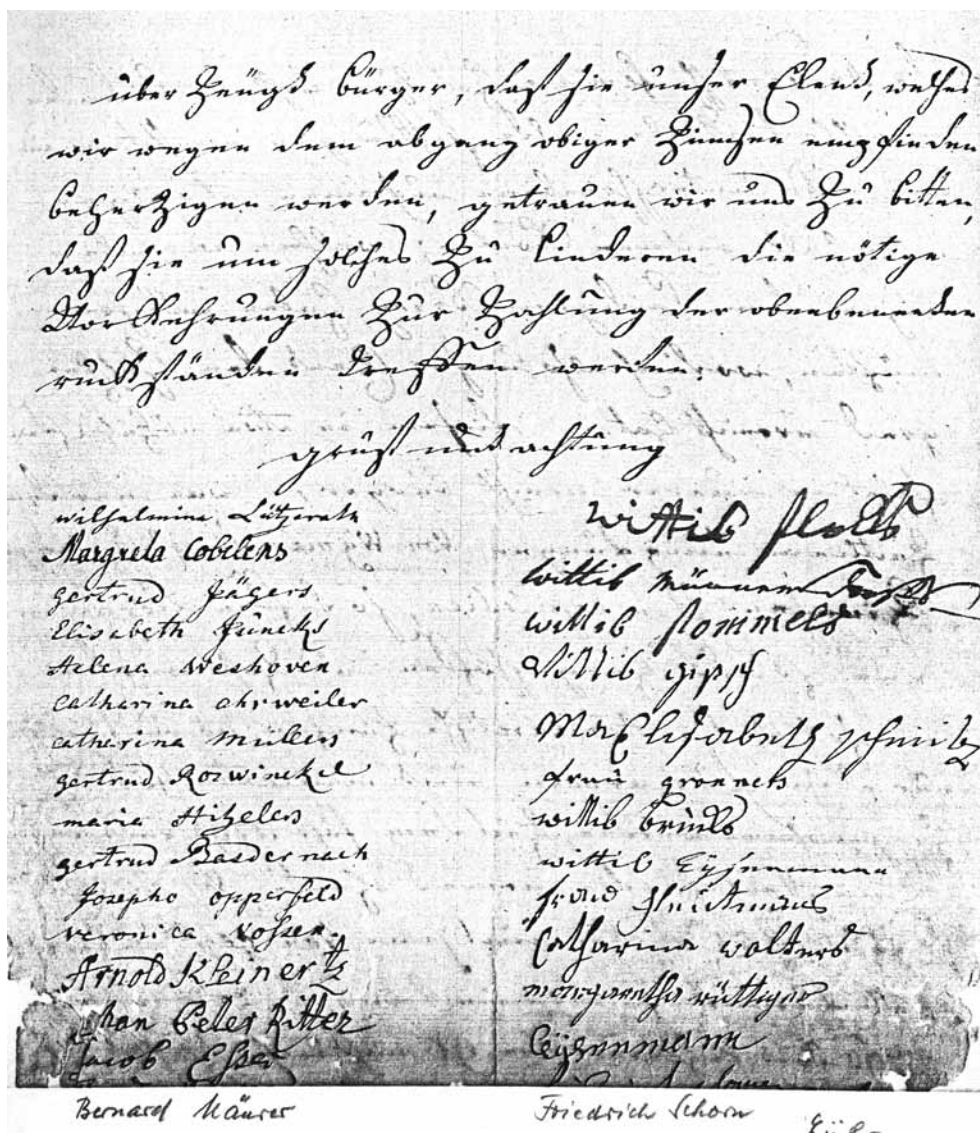 über Zeügd bürger, daß sie unser Elend, welches
wir wegen dem abgang obiger Zinnsen empfinden
beherzigen werden, getrauen wir uns Zu bitten,
daß sie um solches Zu linderen die nötige
Vorkehrungen Zur Zahlung der obenbenenten
rückständen treffen werden.
gruß und achtung
wilhelmina Lützerath
Margreta Cobelens
gertrud Jägers
Elisabeth
Helena Weshoven
catharina ahrweiler
catharina müllers
gertrud Roswinckel
maria Hitzelers
gertrud Basdernach
Josepha opperfeld
veronica vossen.
Arnold Kleinertz
han Peter Ritter
Jacob Esser
wittib
wittib
wittib rommels
Wittib
Ma Elisabeth schmitz
frau gronners
wittib brüels
wittib Eysenmann
frau
Catharina wolters
margaretha rüttigers
Eysenmann
Bernard Mäurer
Friedrich Schorn